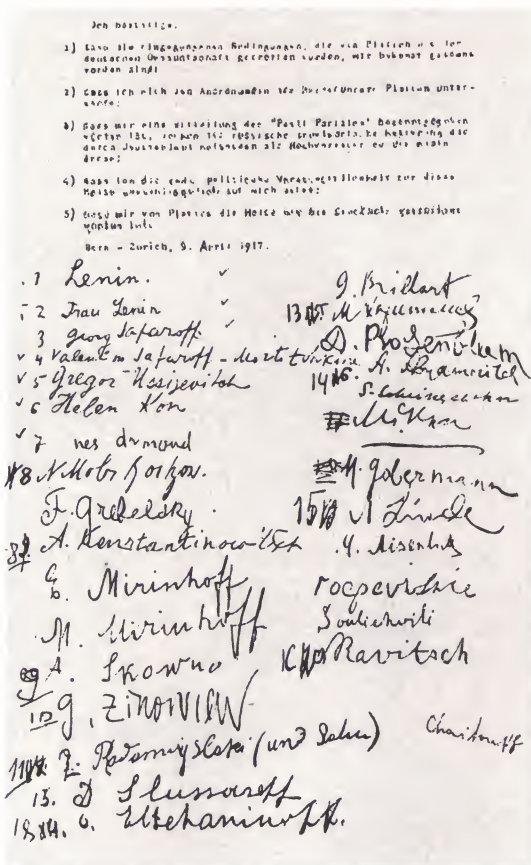 Ich bestätige,
1) dass die eingegangenen Bedingungen, die von Platten mit der
deutschen Gesandtschaft getroffen wurden, mir bekannt gemacht
worden sind;
2) dass ich mich den Anordnungen des Platten unter-
werfe;
3) dass mir eine Mitteilung des "Petit Parisien" bekanntgegeben
worden ist, russische Regierung die
durch Deutschland als Hochverräter
drohe;
4) dass ich die politische Verantwortlichkeit für diese
Reise ausschliesslich auf mich nehme;
5) dass mir von Platten die Reise nur bis Stockholm garantiert
worden ist.
Bern - Zürich, 9. April 1917.
1 Lenin.
2 Frau Lenin
3 Georg Safaroff.
4 Valentin Safaroff -
5 Gregor Ussijevitch
6 Helen Kon
7 nes armand
8 N.
F. Grebelsky.
A. Konstantinowitsch
E. Mirinhoff
M. Mirinhoff
A. Skowno
G. ZINOWIEW
Z. Radomyslski (und Sohn)
13. D Slussareff
14. B. Eltchaninoff.
G. Brillant
M
D. Rosenblum
A. Abramovitch
S. Scheinessohn
M. Gobermann
M Linde
M. Aisenbud
Souliachvili
Ravitsch